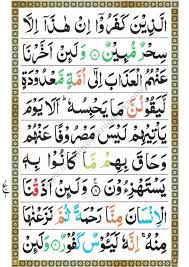 الَّذِيْنَ كَفَرُوْۤا اِنْ هٰذَاۤ اِلَّا
سِحْرٌ مُّبِيْنٌ ۝ وَلَئِنْ اَخَّرْنَا
عَنْهُمُ الْعَذَابَ اِلٰۤى اُمَّةٍ مَّعْدُوْدَةٍ
لَّيَقُوْلُنَّ مَا يَحْبِسُهٗ ؕ اَلَا يَوْمَ
يَاْتِيْهِمْ لَيْسَ مَصْرُوْفًا عَنْهُمْ
وَحَاقَ بِهِمْ مَّا كَانُوْا بِهٖ
يَسْتَهْزِءُوْنَ ۝ وَلَئِنْ اَذَقْنَا
الْاِنْسَانَ مِنَّا رَحْمَةً ثُمَّ نَزَعْنٰهَا
مِنْهُ ۚ اِنَّهٗ لَيَئُوْسٌ كَفُوْرٌ ۝ وَلَئِنْ
ع